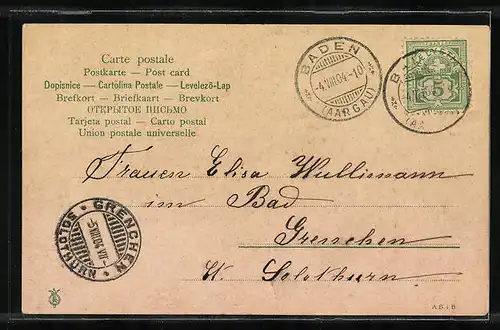 Carte postale
Postkarte — Post card
Dopisnice — Cartolina Postale — Levelező-Lap
Brefkort — Briefkaart — Brevkort
ОТКРЫТОЕ ПИСЬМО
Tarjeta postal — Carto postal
Union postale universelle
BADEN
-4.VIII.04.-10
(AARGAU)
5
Frauen Elisa Wullimann
im Bad
Grenchen
Kt. Solothurn
GRENCHEN
-5.VIII.04.VII-
SOLOTHURN
A.B.i.B